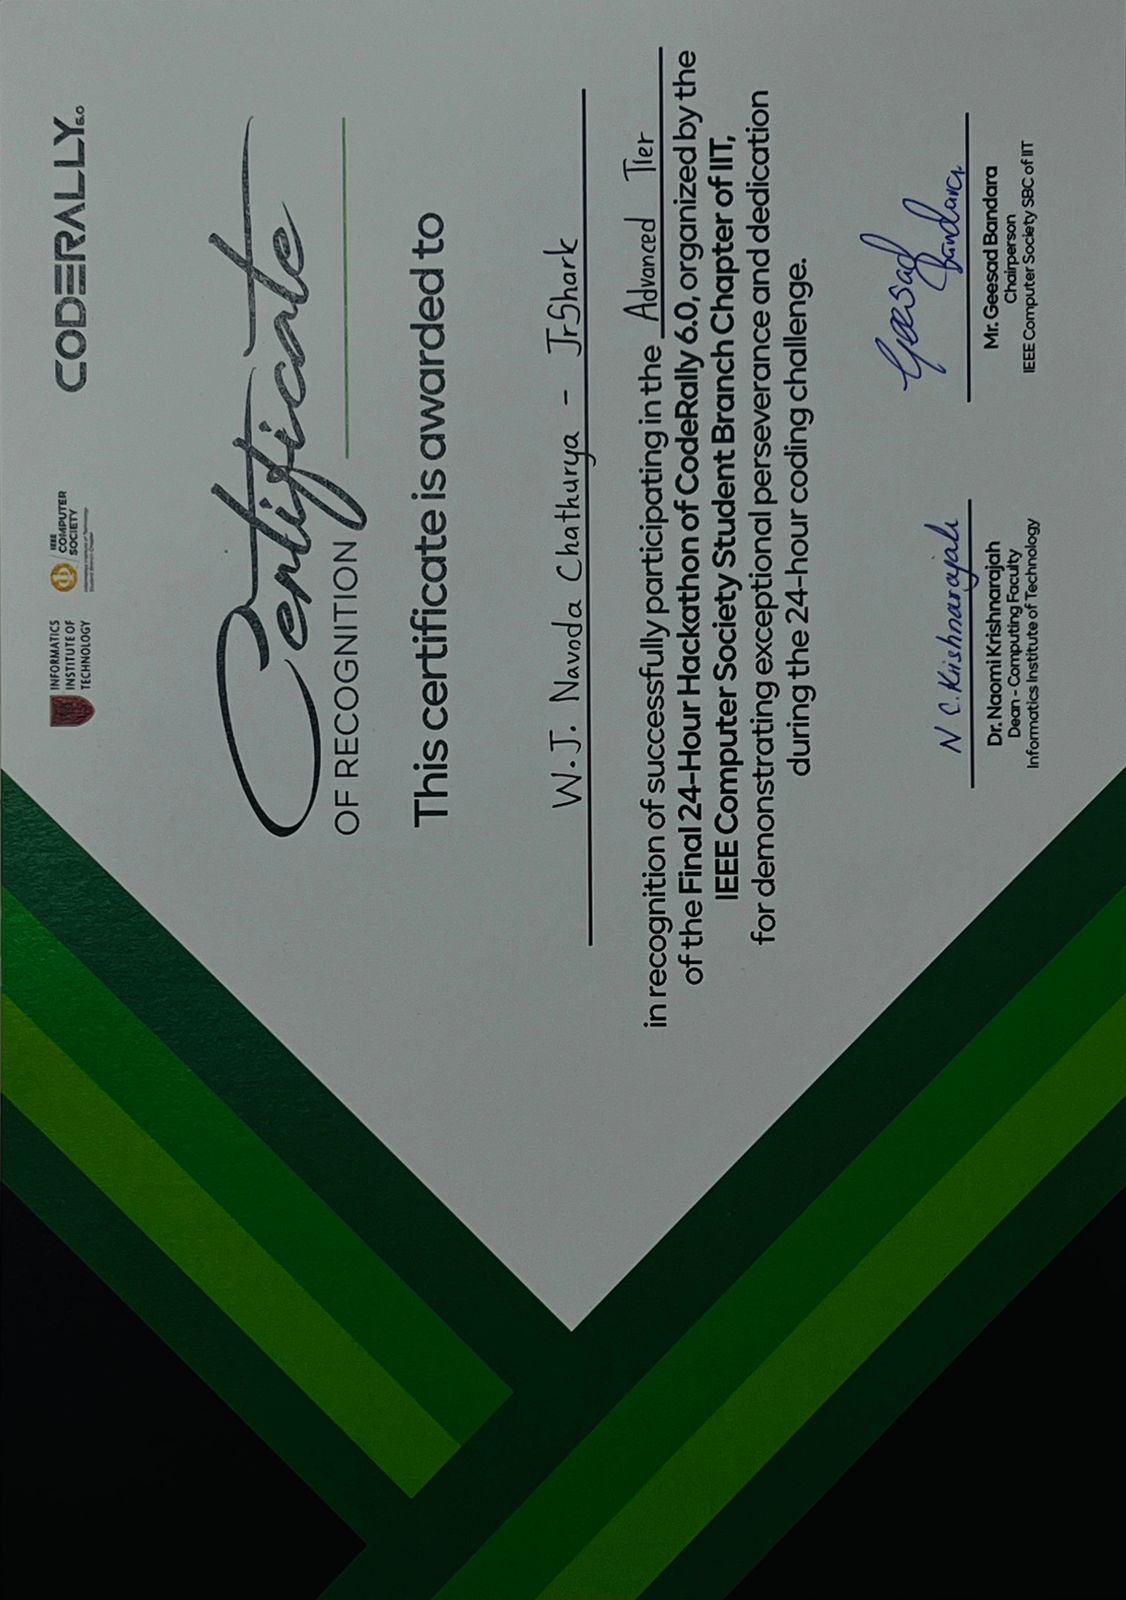 INFORMATICS
INSTITUTE OF
TECHNOLOGY
IEEE
COMPUTER
SOCIETY
Informatics Institute of Technology
Student Branch Chapter
CODERALLY 6.0
Certificate
OF RECOGNITION
This certificate is awarded to
W.J. Navoda Chathurya - JrShark
in recognition of successfully participating in the Advanced Tier
of the Final 24-Hour Hackathon of CodeRally 6.0, organized by the
IEEE Computer Society Student Branch Chapter of IIT,
for demonstrating exceptional perseverance and dedication
during the 24-hour coding challenge.
N C. Krishnarajah
Geesad
Bandara
Dr. Naomi Krishnarajah
Dean - Computing Faculty
Informatics Institute of Technology
Mr. Geesad Bandara
Chairperson
IEEE Computer Society SBC of IIT